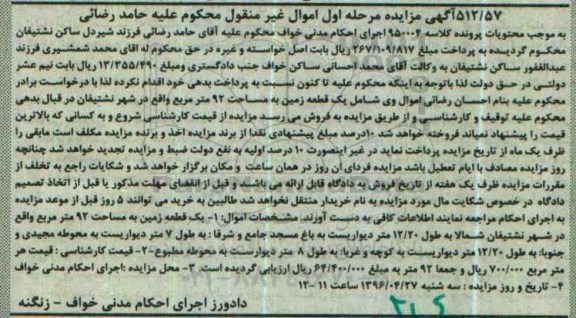 ۵۱۲/۵۷آگهی مزایده مرحله اول اموال غیر منقول محکوم علیه حامد رضائی
به موجب محتویات پرونده کلاسه ۹۵۰۰۰۴ اجرای احکام مدنی خواف محکوم علیه آقای حامد رضائی فرزند شیردل ساکن نشتیفان
محکوم گردیده به پرداخت مبلغ ۲۶۷/۱۰۹/۸۱۷ ریال بابت اصل خواسته و غیره در حق محکوم له اقای محمد شمشیری فرزند
عبدالغفور ساکن نشتیفان به وکالت آقای محمد احسانی ساکن خواف جنب دادگستری ومبلغ ۱۳/۳۵۵/۴۹۰ ریال بابت نیم عشر
دولتی در حق دولت لذا باتوجه به اینکه محکوم علیه تا کنون نسبت به پرداخت بدهی خود اقدام نکرده لذا با درخواست برادر
محکوم علیه بنام احسان رضائی اموال وی شامل یک قطعه زمین به مساحت ۹۲ متر مربع واقع در شهر نشتیفان در قبال بدهی
محکوم علیه توقیف و کارشناسی و از طریق مزایده به فروش می رسد مزایده از قیمت کارشناسی شروع و به کسانی که بالاترین
قیمت را پیشنهاد نمایند فروخته خواهد شد ۱۰درصد مبلغ پیشنهادی نقدا از برنده مزایده اخذ و برنده مزایده مکلف است مابقی را
ظرف یک ماه از تاریخ مزایده پرداخت نماید در غیر اینصورت ۱۰ درصد اولیه به نفع دولت ضبط و مزایده تجدید خواهد شد چنانچه
روز مزایده مصادف با ایام تعطیل باشد مزایده فردای آن روز در همان ساعت و مکان برگزار خواهد شد و شکایات راجع به تخلف از
مقررات مزایده ظرف یک هفته از تاریخ فروش به دادگاه قابل ارائه می باشند و قبل از انقضای مهلت مذکور یا قبل از اتخاذ تصمیم
دادگاه در خصوص شکایت مال مورد مزایده به نام خریدار منتقل نخواهد شد طالبین به خرید می توانند ۵ روز قبل از موعد مزایده
به اجرای احکام مراجعه نمایند اطلاعات کافی به دست آورند. مشخصات اموال: ۱- یک قطعه زمین به مساحت ۹۲ متر مربع واقع
در شهر نشتیفان شمالا به طول ۱۲/۲۰ متر دیواریست به باغ مسجد جامع و شرقا : به طول ۷ متر دیواریست به محوطه مجیدی و
جنوبا: به طول ۱۲/۲۰ متر دیواریست به کوچه و غربا: به طول ۸ متر دیوارست به محوطه مطبوع ۲- قیمت کارشناسی : قیمت هر
متر مربع ۷۰۰/۰۰۰ ریال و جمعا ۹۲ متر به مبلغ ۶۴/۴۰۰/۰۰۰ ریال ارزیابی گردیده است. ۳- محل مزایده :اجرای احکام مدنی خواف
۴- تاریخ و روز مزایده : سه شنبه ۱۳۹۶/۰۴/۲۷ ساعت ۱۱ -۱۲
دادورز اجرای احکام مدنی خواف - زنگنه